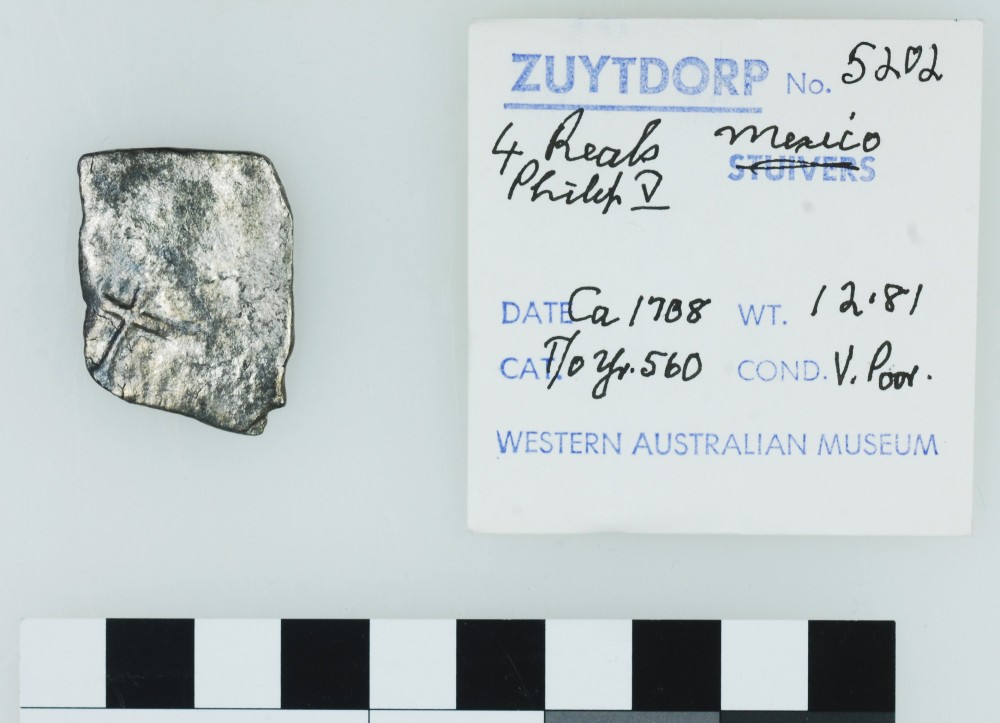 ZUYTDORP No. 5202
4 Reals Mexico
Philip V STUIVERS
DATE Ca 1708 WT. 12.81
CAT. T/o Yr. 560 COND. V. Poor.
WESTERN AUSTRALIAN MUSEUM